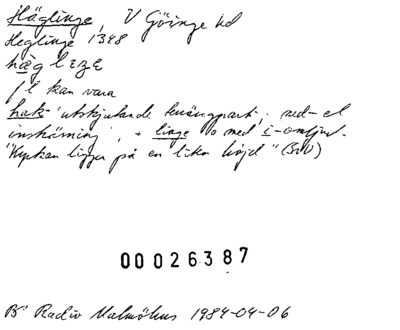 Häglinge, V Göinge hd
Heglinge 1348
hæglɛŋɛ
fl kan vara
hak- 'utskjutande
inskärning', + linge med i-omljud.
"Kyrkan ligger på en liten höjd" (SvU)
00026387
B Radio Malmöhus 1984-04-06